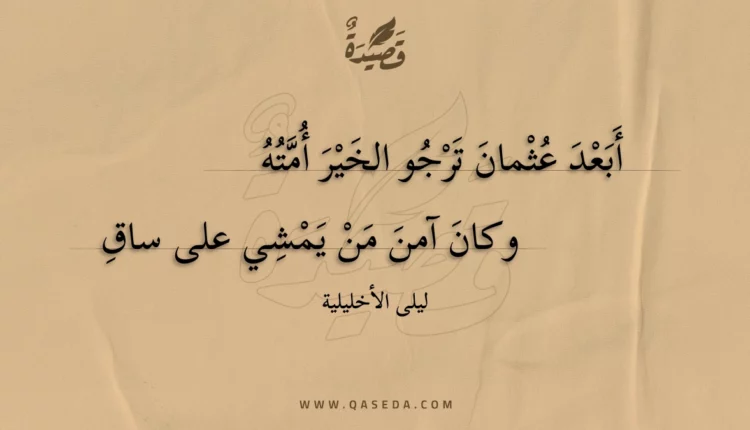 قَصِيْدَةٌ
أَبَعْدَ عُثْمانَ تَرْجُو الخَيْرَ أُمَّتُهُ
وكانَ آمنَ مَنْ يَمْشِي على ساقِ
ليلى الأخليلية
WWW.QASEDA.COM